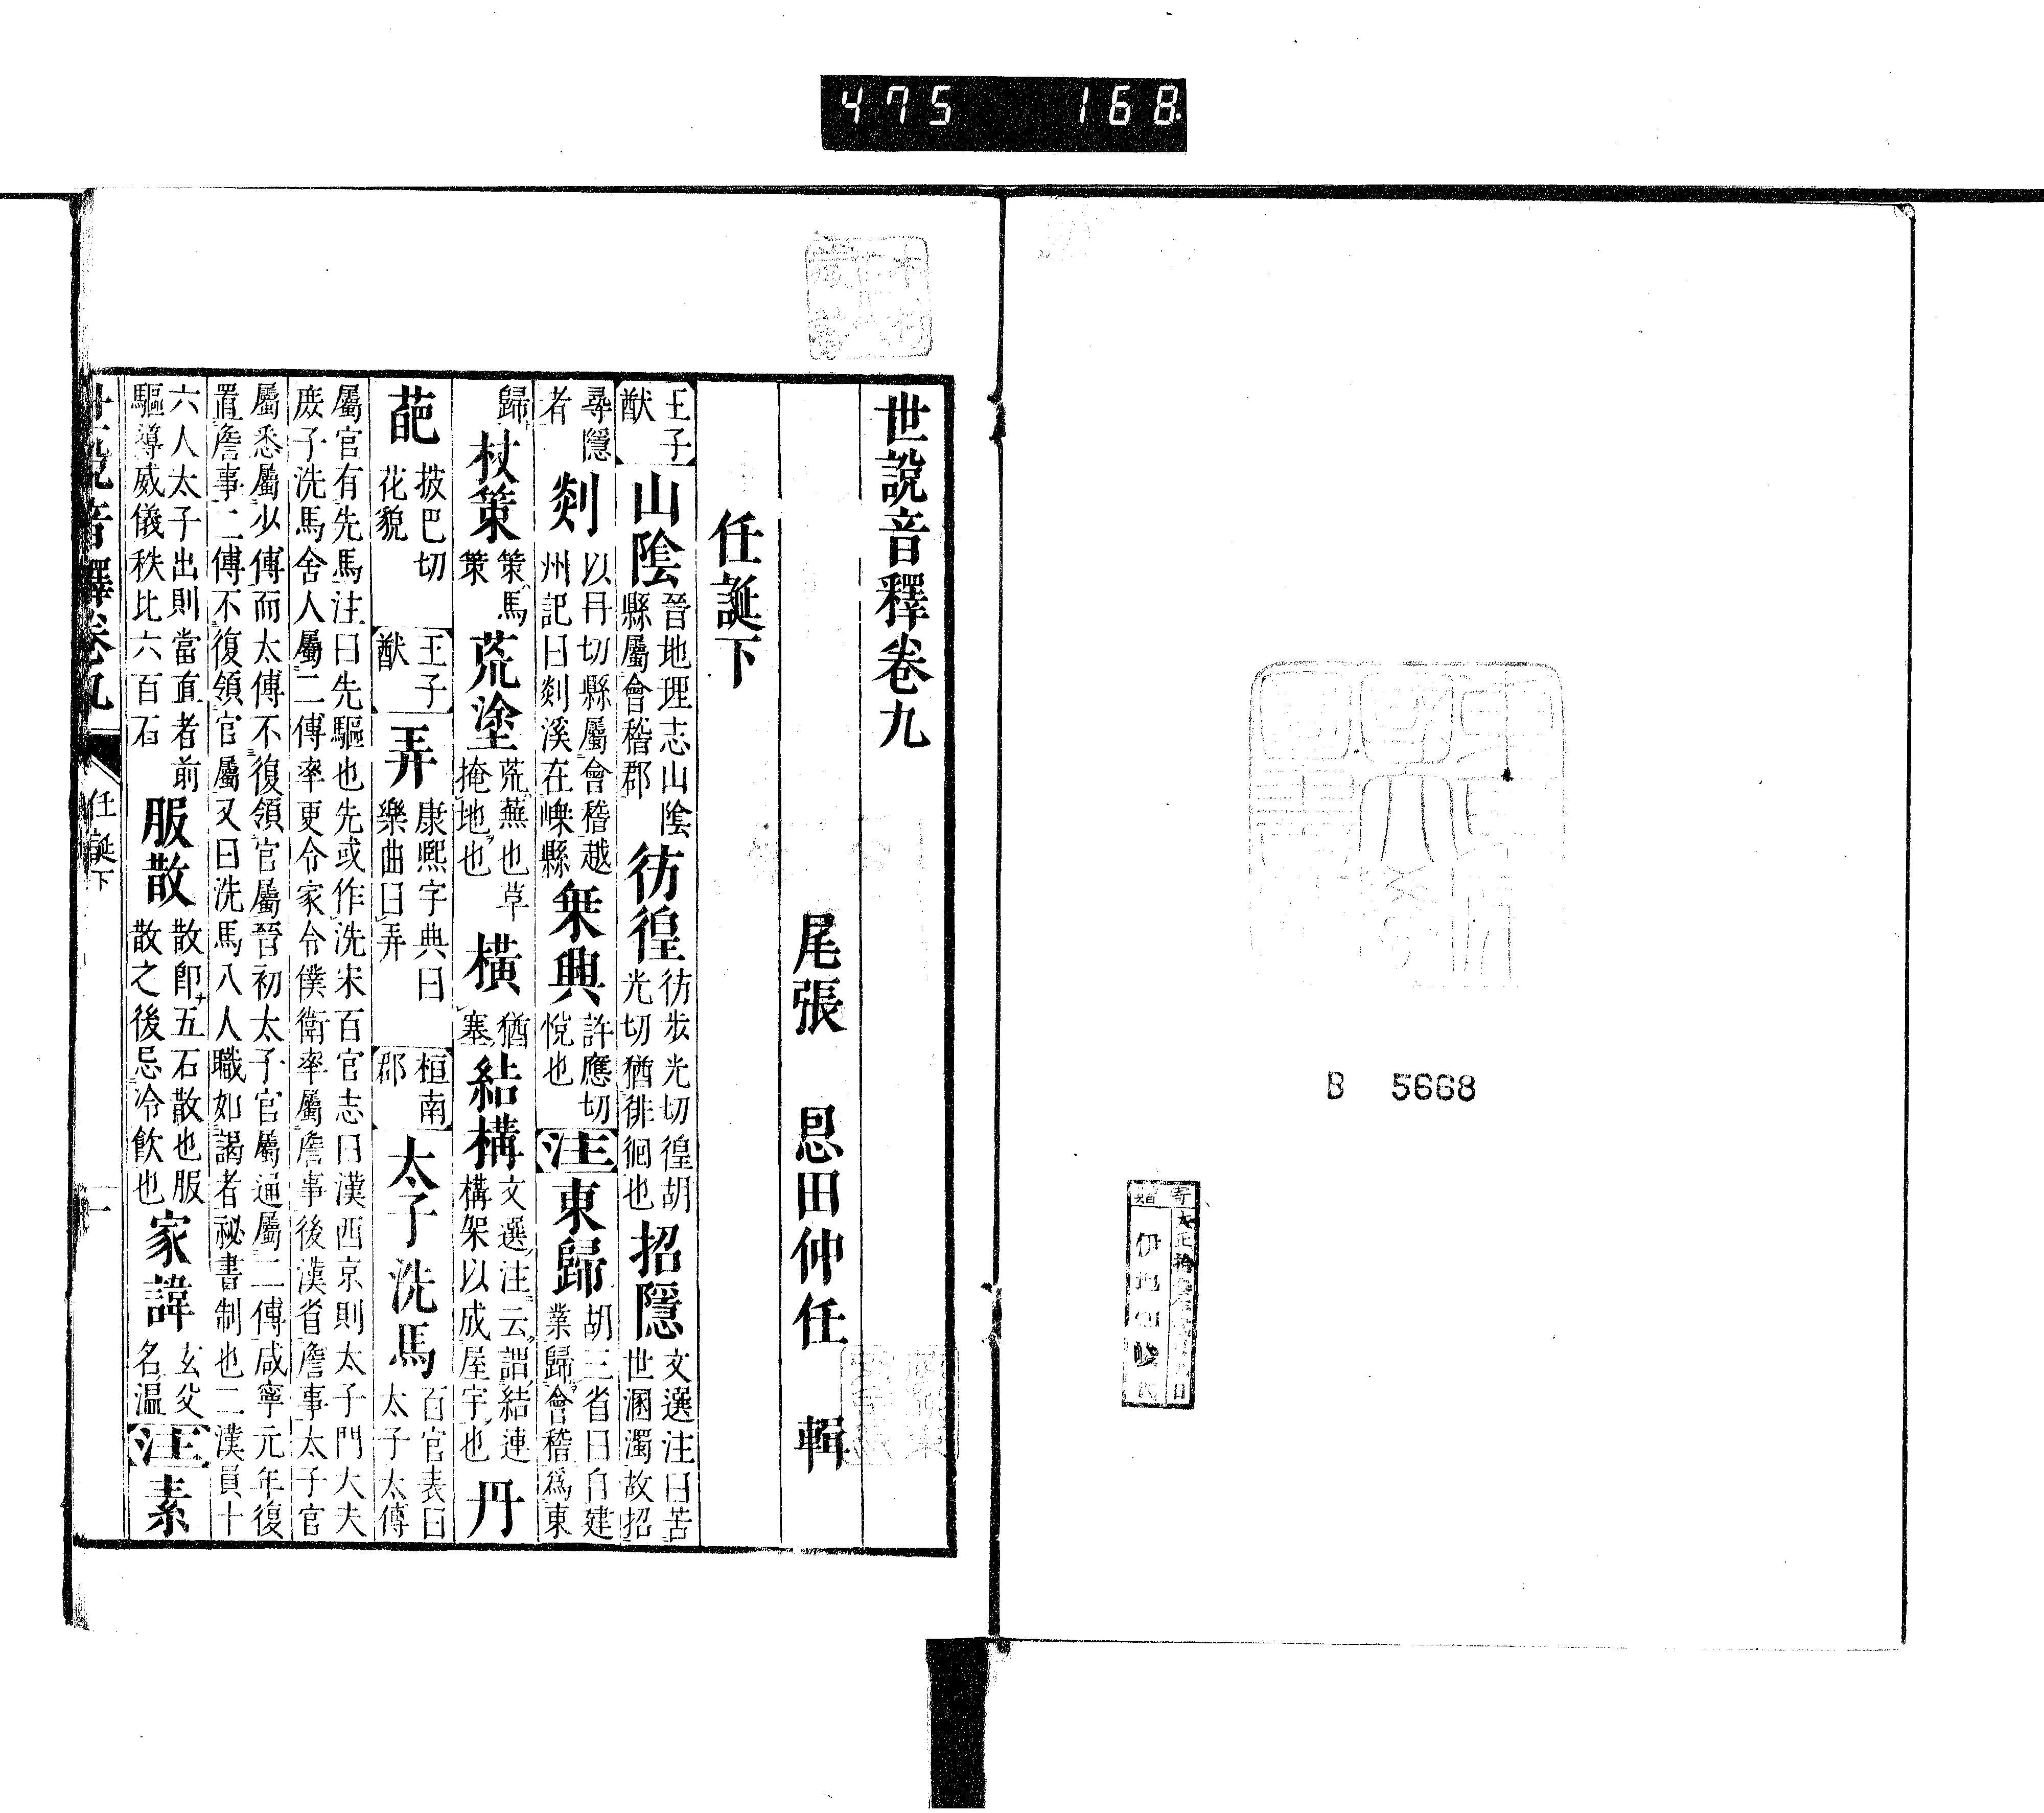 475 168
B 5668
世說音釋卷九
尾張 恩田仲任 輯
任誕下
王子猷 山陰 晉地理志山陰縣屬會稽郡 彷徨 彷步光切徨胡光切猶徘徊也 招隱 文選注曰苦世溷濁故招
尋隱者 剡 以冄切縣屬會稽越州記曰剡溪在嵊縣 椉興 許應切悅也 注 東歸 胡三省曰自建業歸會稽爲東
歸 杖策 策馬策 荒塗 荒蕪也草掩地也 橫 猶塞 結構 文選注云謂結連構架以成屋宇也 丹
葩 披巴切花貌 王子猷 弄 康熙字典曰樂曲曰弄 桓南郡 太子洗馬 百官表曰太子太傅
屬官有先馬注曰先驅也先或作洗宋百官志曰漢西京則太子門大夫
庶子洗馬舍人屬二傅率更令家令僕衛率屬詹事後漢省詹事太子官
屬悉屬少傅而太傅不復領官屬晉初太子官屬通屬二傅咸寧元年復
置詹事二傅不復領官屬又曰洗馬八人職如謁者祕書制也二漢員十
六人太子出則當直者前驅導威儀秩比六百石 服散 散卽五石散也服散之後忌冷飲也 家諱 玄父名溫 注 素
世說音釋卷九 任誕下 一